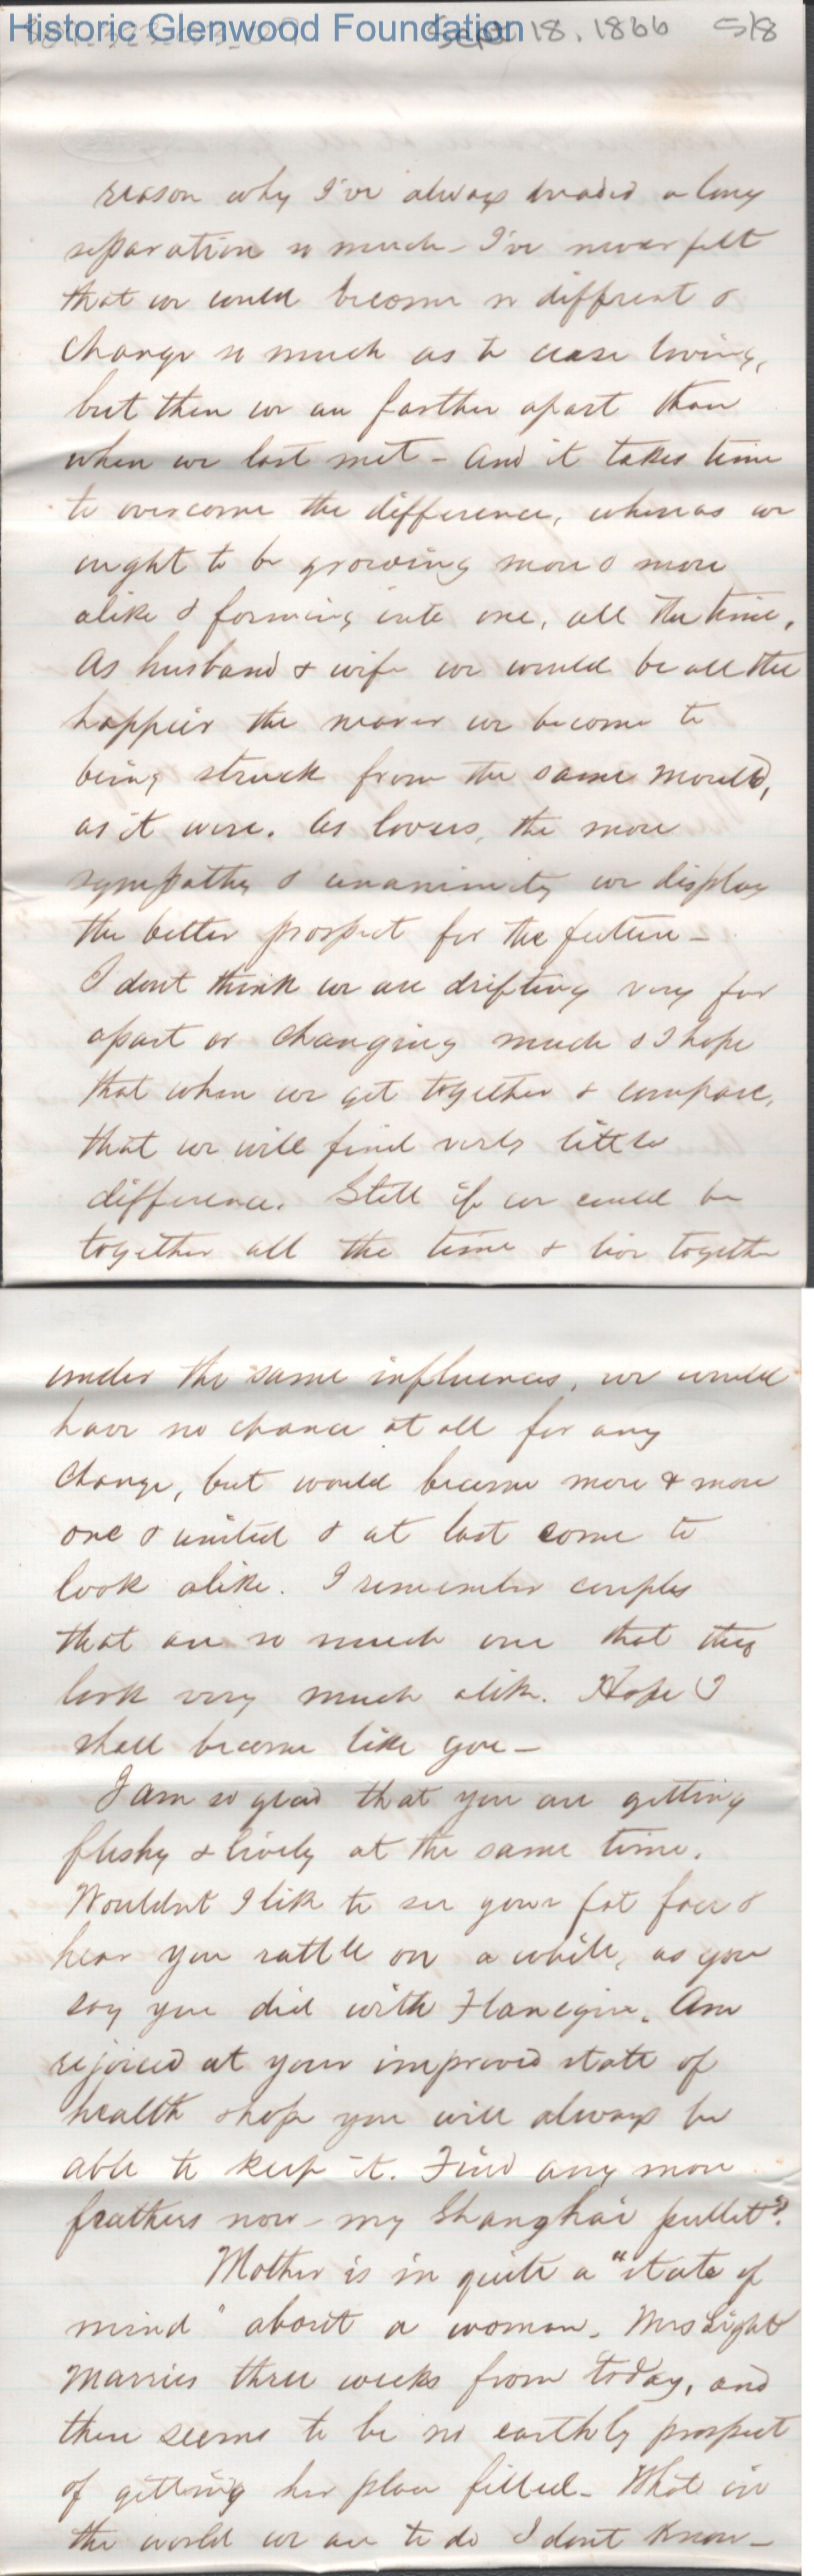 Historic Glenwood Foundation
Sep 18, 1866 5/8
reason why I've always dreaded a long
separation so much - I've never felt
that we could become so different &
change so much as to cease loving,
but then we are farther apart than
when we last met - and it takes time
to overcome the difference, whereas we
ought to be growing more & more
alike & forming into one, all the time.
As husband & wife we would be all the
happier the nearer we become to
being struck from the same mould,
as it were. As lovers, the more
sympathy & unanimity we display
the better prospect for the future -
I dont think we are drifting very far
apart or changing much & I hope
that when we get together & compare,
that we will find very little
difference. Still if we could be
together all the time & live together
under the same influences, we would
have no chance at all for any
change, but would become more & more
one & united & at last come to
look alike. I remember couples
that are so much one that they
look very much alike. Hope I
shall become like you -
I am so glad that you are getting
fleshy & lively at the same time.
Wouldnt I like to see your fat face &
hear you rattle on a while, as you
say you did with Flanegin. Am
rejoiced at your improved state of
health & hope you will always be
able to keep it. Find any more
feathers now - my Shanghai pullet?
Mother is in quite a "state of
mind" about a woman. Mrs Light
marries three weeks from today, and
there seems to be no earthly prospect
of getting her place filled - What in
the world we are to do I dont know -